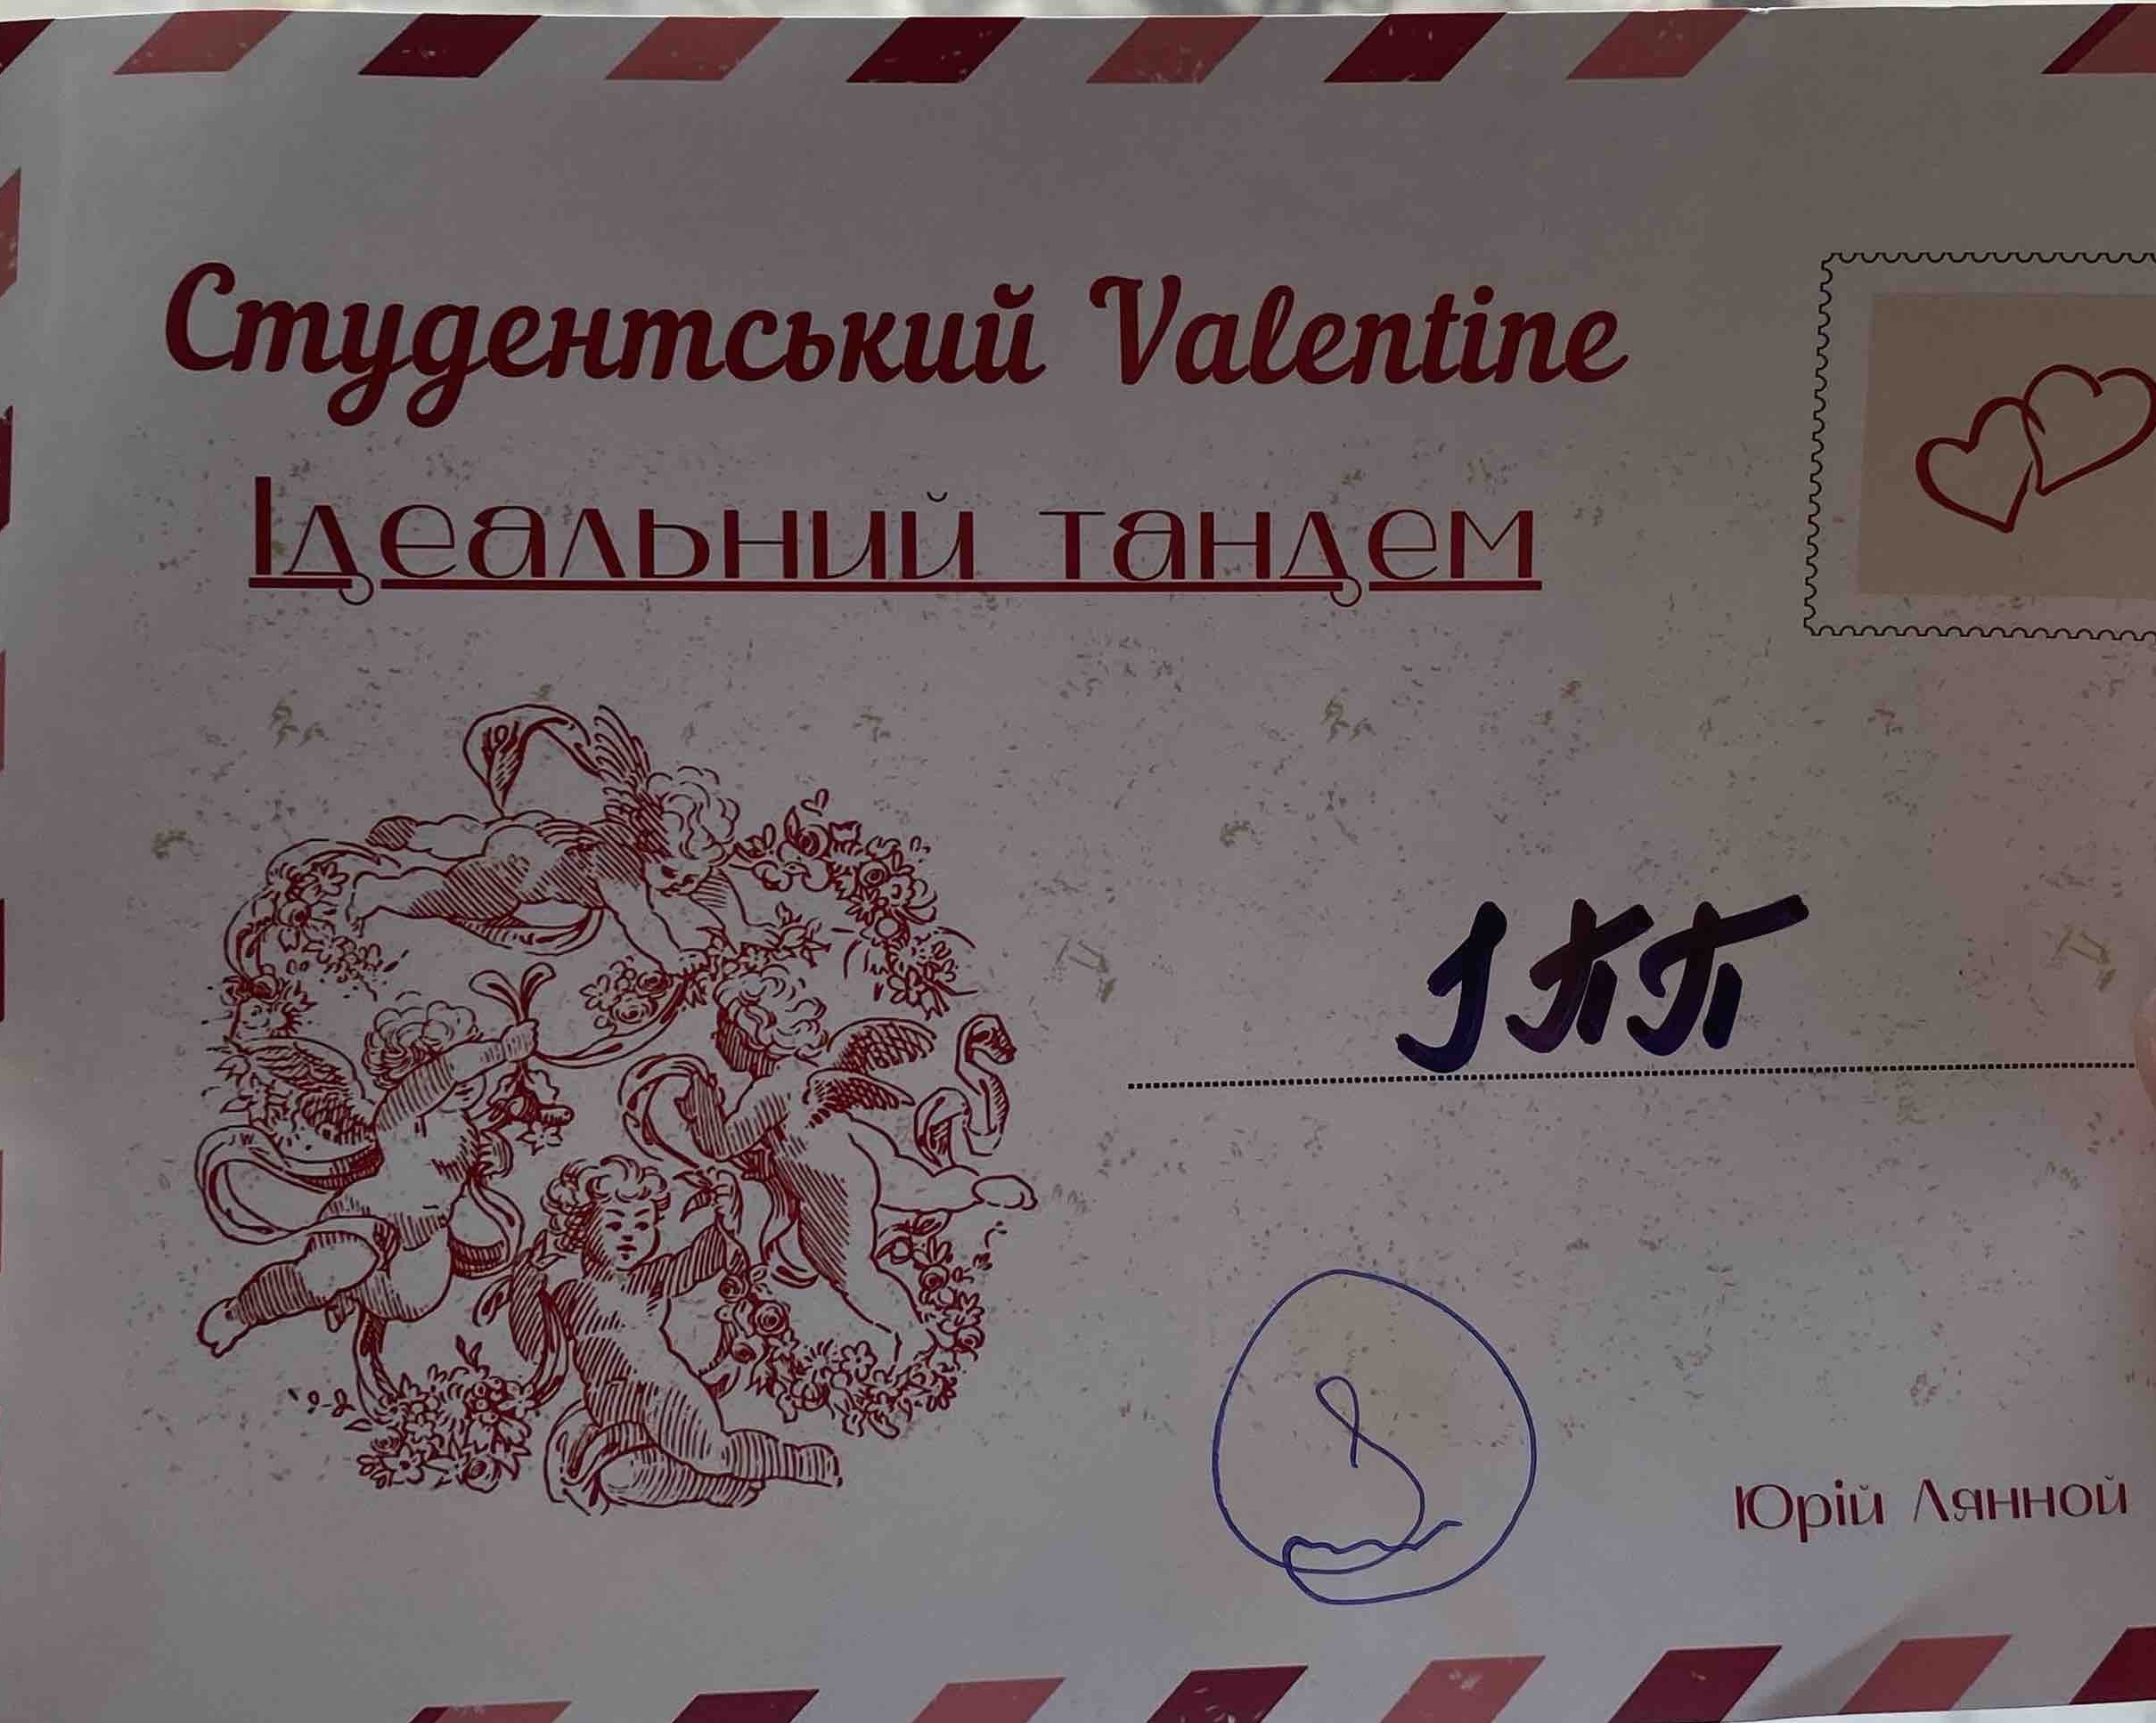 Студентський Valentine
Ідеальний тандем
ІПП
Юрій Лянной